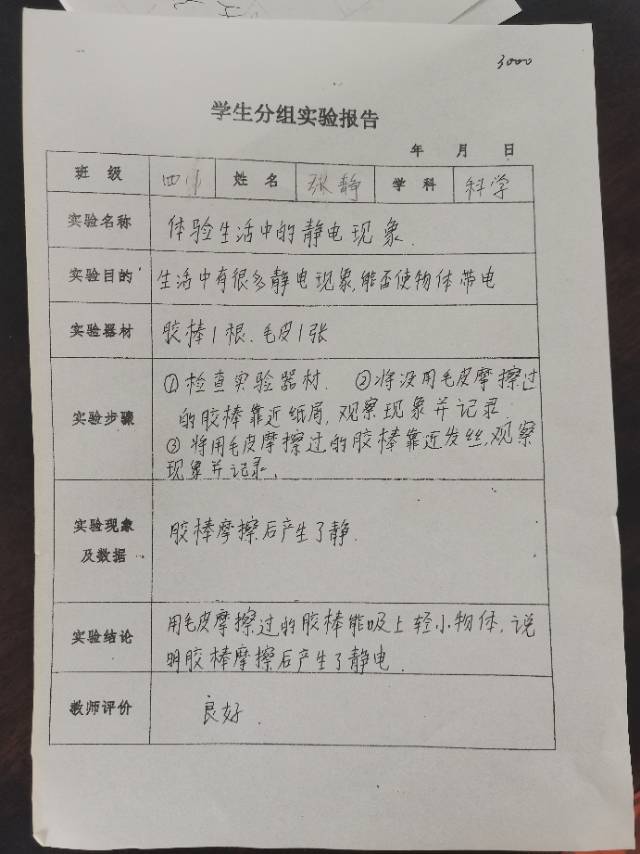 3000
学生分组实验报告
年 月 日
班 级 四 姓 名 张静 学 科 科学
实验名称 体验生活中的静电现象.
实验目的 生活中有很多静电现象,能否使物体带电
实验器材 胶棒1根、毛皮1张
实验步骤
①检查实验器材. ②将没用毛皮摩擦过
的胶棒靠近纸屑,观察现象并记录.
③将用毛皮摩擦过的胶棒靠近发丝,观察
现象并记录.
实验现象
及数据
胶棒摩擦后产生了静.
实验结论
用毛皮摩擦过的胶棒能吸上轻小物体,说
明胶棒摩擦后产生了静电.
教师评价 良好.